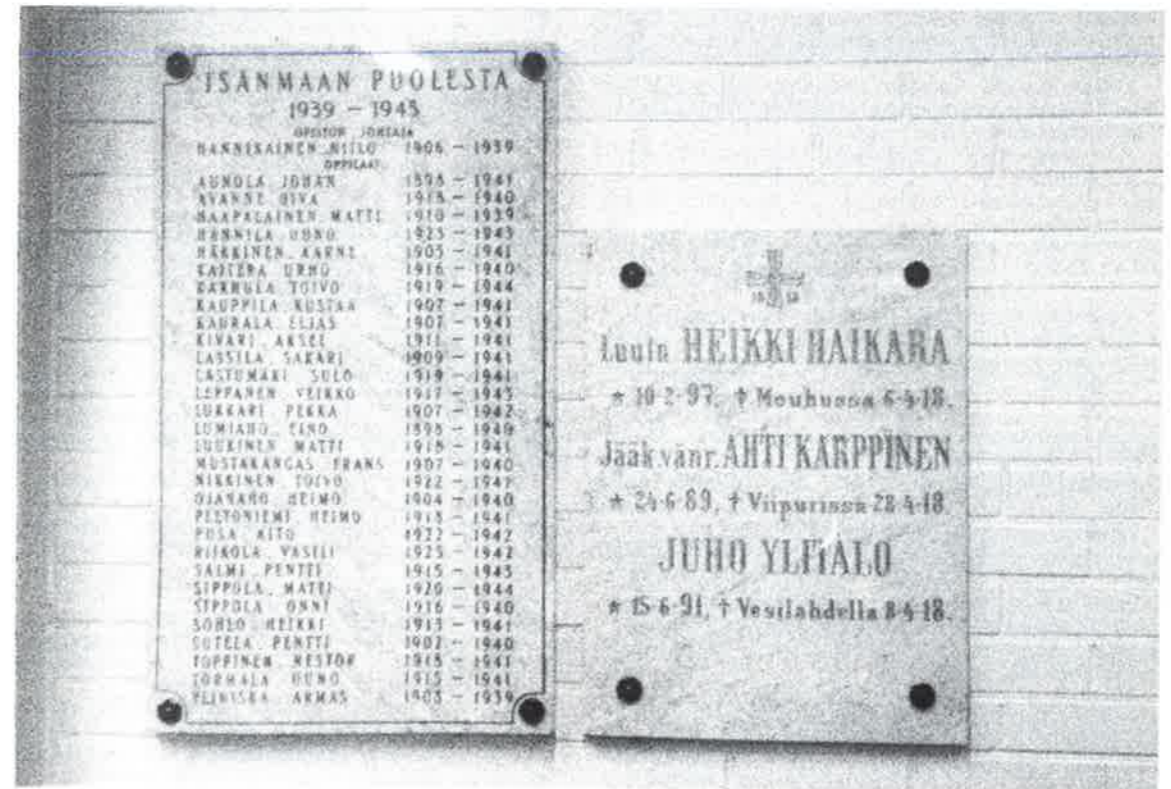 ISÄNMAAN PUOLESTA
1939 – 1945
OPISTON JOHTAJA
HANNIKAINEN NIILO 1906 – 1939
OPPILAAT
AUNOLA JOHAN 1898 – 1941
AVANNE OIVA 1918 – 1940
HAAPALAINEN MATTI 1910 – 1939
HANNILA UUNO 1923 – 1943
HÄKKINEN AARNE 1905 – 1941
KAITERA URHO 1916 – 1940
KARHULA TOIVO 1919 – 1944
KAUPPILA KUSTAA 1907 – 1941
KAURALA ELIAS 1907 – 1941
KIVARI AKSEL 1911 – 1941
LASSILA SAKARI 1909 – 1941
LASTUMÄKI SULO 1919 – 1941
LEPPÄNEN VEIKKO 1917 – 1943
LUKKARI PEKKA 1907 – 1942
LUMIAHO EINO 1898 – 1940
LUUKINEN MATTI 1918 – 1941
MUSTAKANGAS FRANS 1907 – 1940
NIKKINEN TOIVO 1922 – 1942
OJANAHO HEIMO 1904 – 1940
PELTONIEMI HEIMO 1918 – 1941
POSA AITO 1922 – 1942
RISKOLA VASILI 1923 – 1942
SALMI PENTTI 1915 – 1943
SIPPOLA MATTI 1920 – 1944
SIPPOLA ONNI 1916 – 1940
SOHLO HEIKKI 1913 – 1941
SUTELA PENTTI 1902 – 1940
TOPPINEN NESTOR 1918 – 1941
TÖRMÄLÄ UUNO 1915 – 1941
YLINISKA ARMAS 1908 – 1939
19 18
Luutn HEIKKI HAIKARA
* 10-2-97, † Mouhussa 6-4-18.
Jääk.vänr. AHTI KARPPINEN
* 24-6-89, † Viipurissa 28-4-18.
JUHO YLITALO
* 15-6-91, † Vesilahdella 8-4-18.